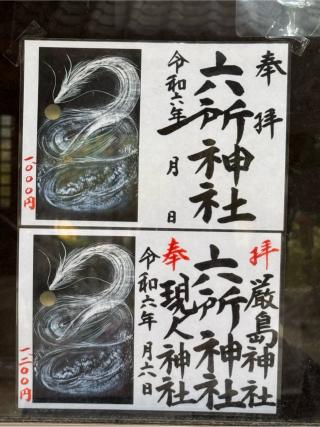 奉拝
六所神社
令和六年 月 日
一〇〇〇円
拝
厳島神社
六所神社
奉
現人神社
令和六年 月六日
一二〇〇円